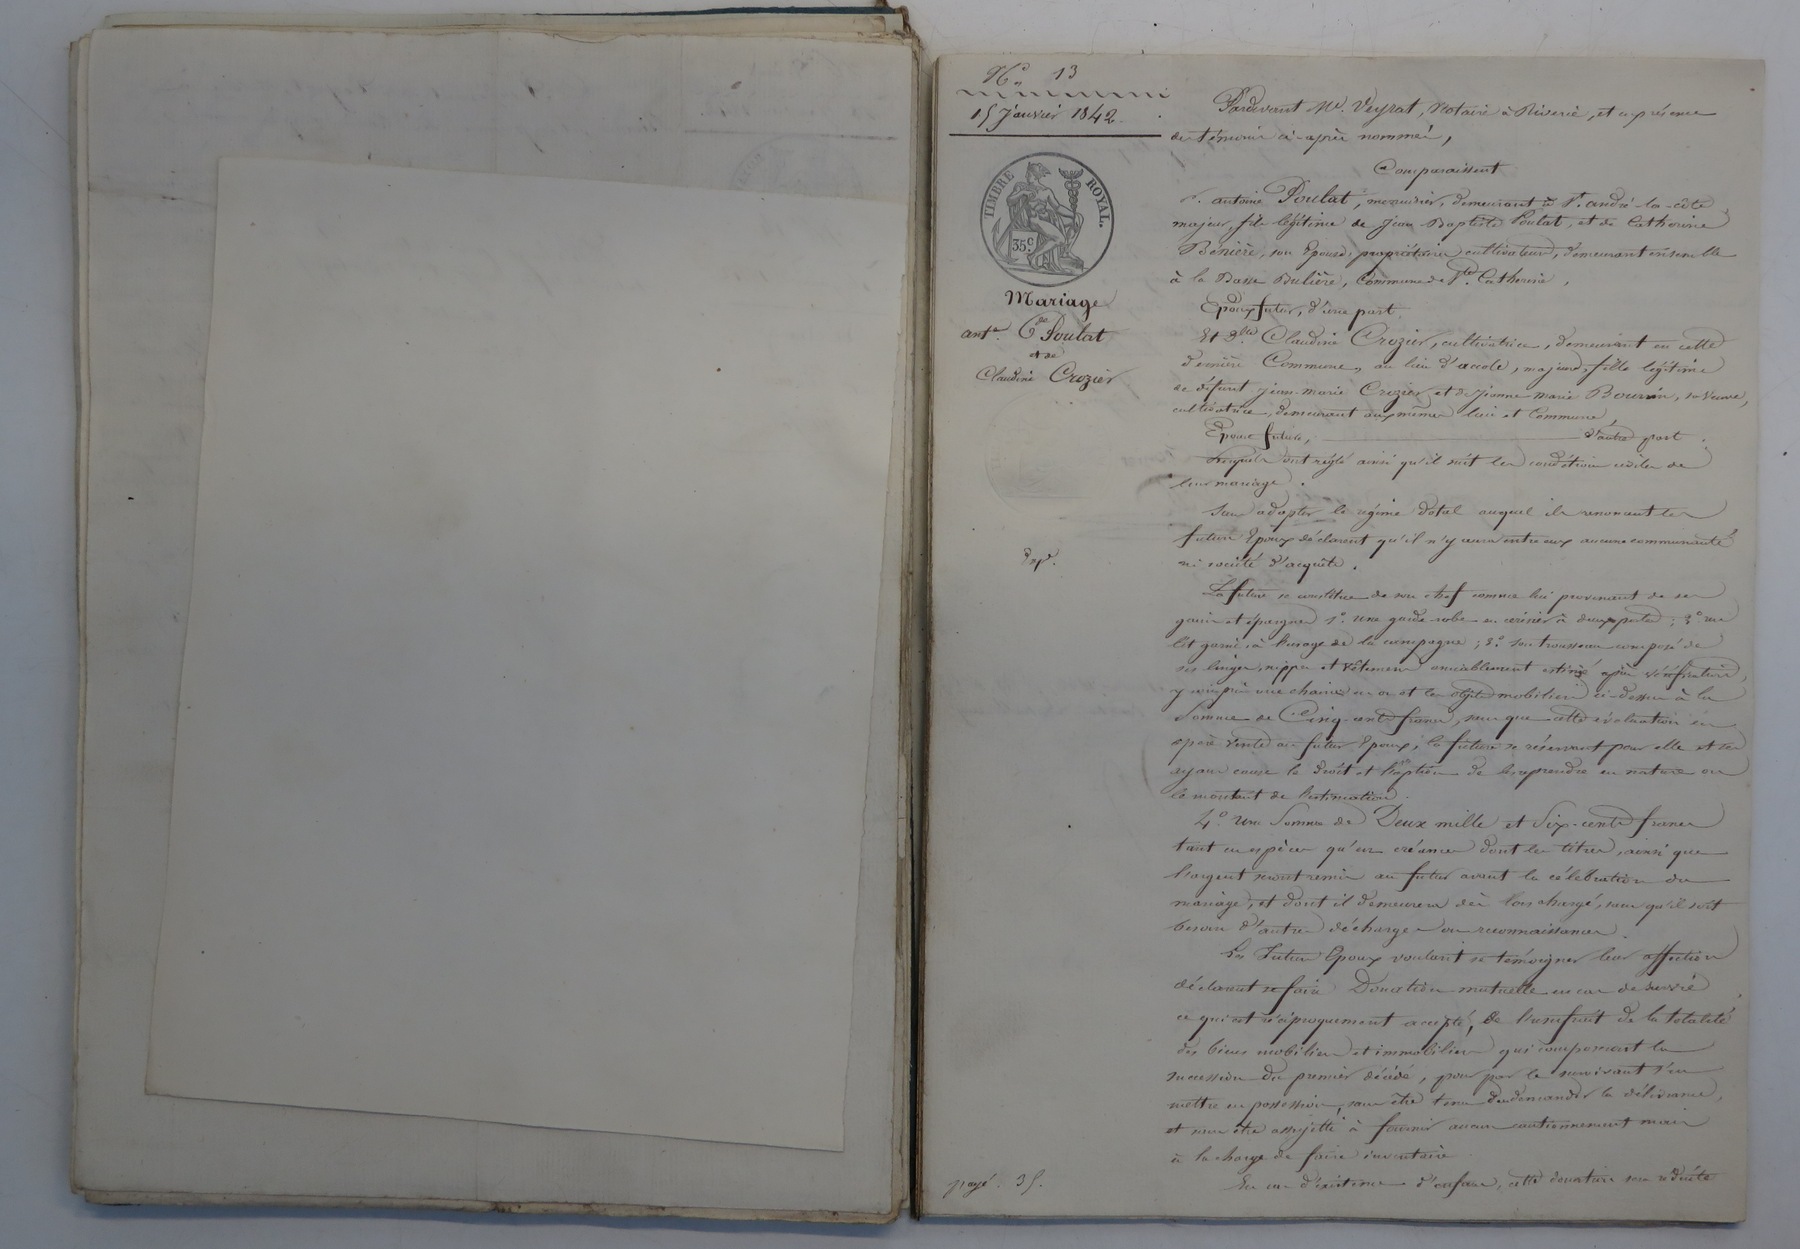 N° 13
15 Janvier 1842.
TIMBRE ROYAL.
35 c
Mariage
ant.e C.de Poulat
et de
Claudine Crozier
Exp.é
payé. 35.
Pardevant M.e Veyrat, Notaire à Riverie, et en présence
des témoins ci-après nommés,
Comparaissent
S. antoine Poulat, menuisier, demeurant à S.t andré-la-côte,
majeur, fils légitime de Jean Baptiste Poulat, et de Catherine
Bénière, son Epouse, propriétaires cultivateurs, demeurant ensemble
à la Basse Bulière, Commune de S.te Catherine,
Epoux futur, d'une part,
Et D.lle Claudine Crozier, cultivatrice, demeurant en cette
dernière Commune, au lieu d'accole, majeure, fille légitime
de défunt Jean-marie Crozier et de Jeanne marie Bourrin, sa veuve,
cultivatrice, demeurant aux mêmes lieu et Commune,
Epouse future, d'autre part.
Lesquels ont réglé ainsi qu'il suit les conditions civiles de
leur mariage.
Sans adopter le régime Dotal auquel ils renoncent les
futurs Epoux déclarent qu'il n'y aura entre eux aucune communauté
ni société d'acquêts.
La future se constitue de son chef comme lui provenant de ses
gains et épargnes 1°. une garde robe en cerisier à deux portes; 2° un
lit garni à l'usage de la campagne; 3° son trousseau composé de
ses linges, nippes et vêtemens amiablement estimé après vérification,
y compris une chaine en or et les objets mobiliers ci-dessus à la
Somme de Cinq-cents francs, sans que cette évaluation en
opère vente au futur Epoux, la future se réservant pour elle et ses
ayans cause le droit et l'option de les reprendre en nature ou
le montant de l'estimation.
4° une Somme de Deux mille et Six-cents francs
tant en espèces qu'en créances dont les titres, ainsi que
l'argent seront remis au futur avant la célébration du
mariage, et dont il demeurera dès lors chargé, sans qu'il soit
besoin d'autres décharge ou reconnaissances.
Les Futurs Epoux voulant se témoigner leur affection
déclarent se faire Donation mutuelle en cas de survie,
ce qui est réciproquement accepté, de l'usufruit de la totalité
des biens mobiliers et immobiliers qui composeront la
succession du premier décédé, pour par le survivant s'en
mettre en possession, sans être tenu d'en demander la délivrance,
et sans être assujetti à fournir aucun cautionnement mais
à la charge de faire inventaire.
En cas d'existence d'enfans, cette donation sera réduite